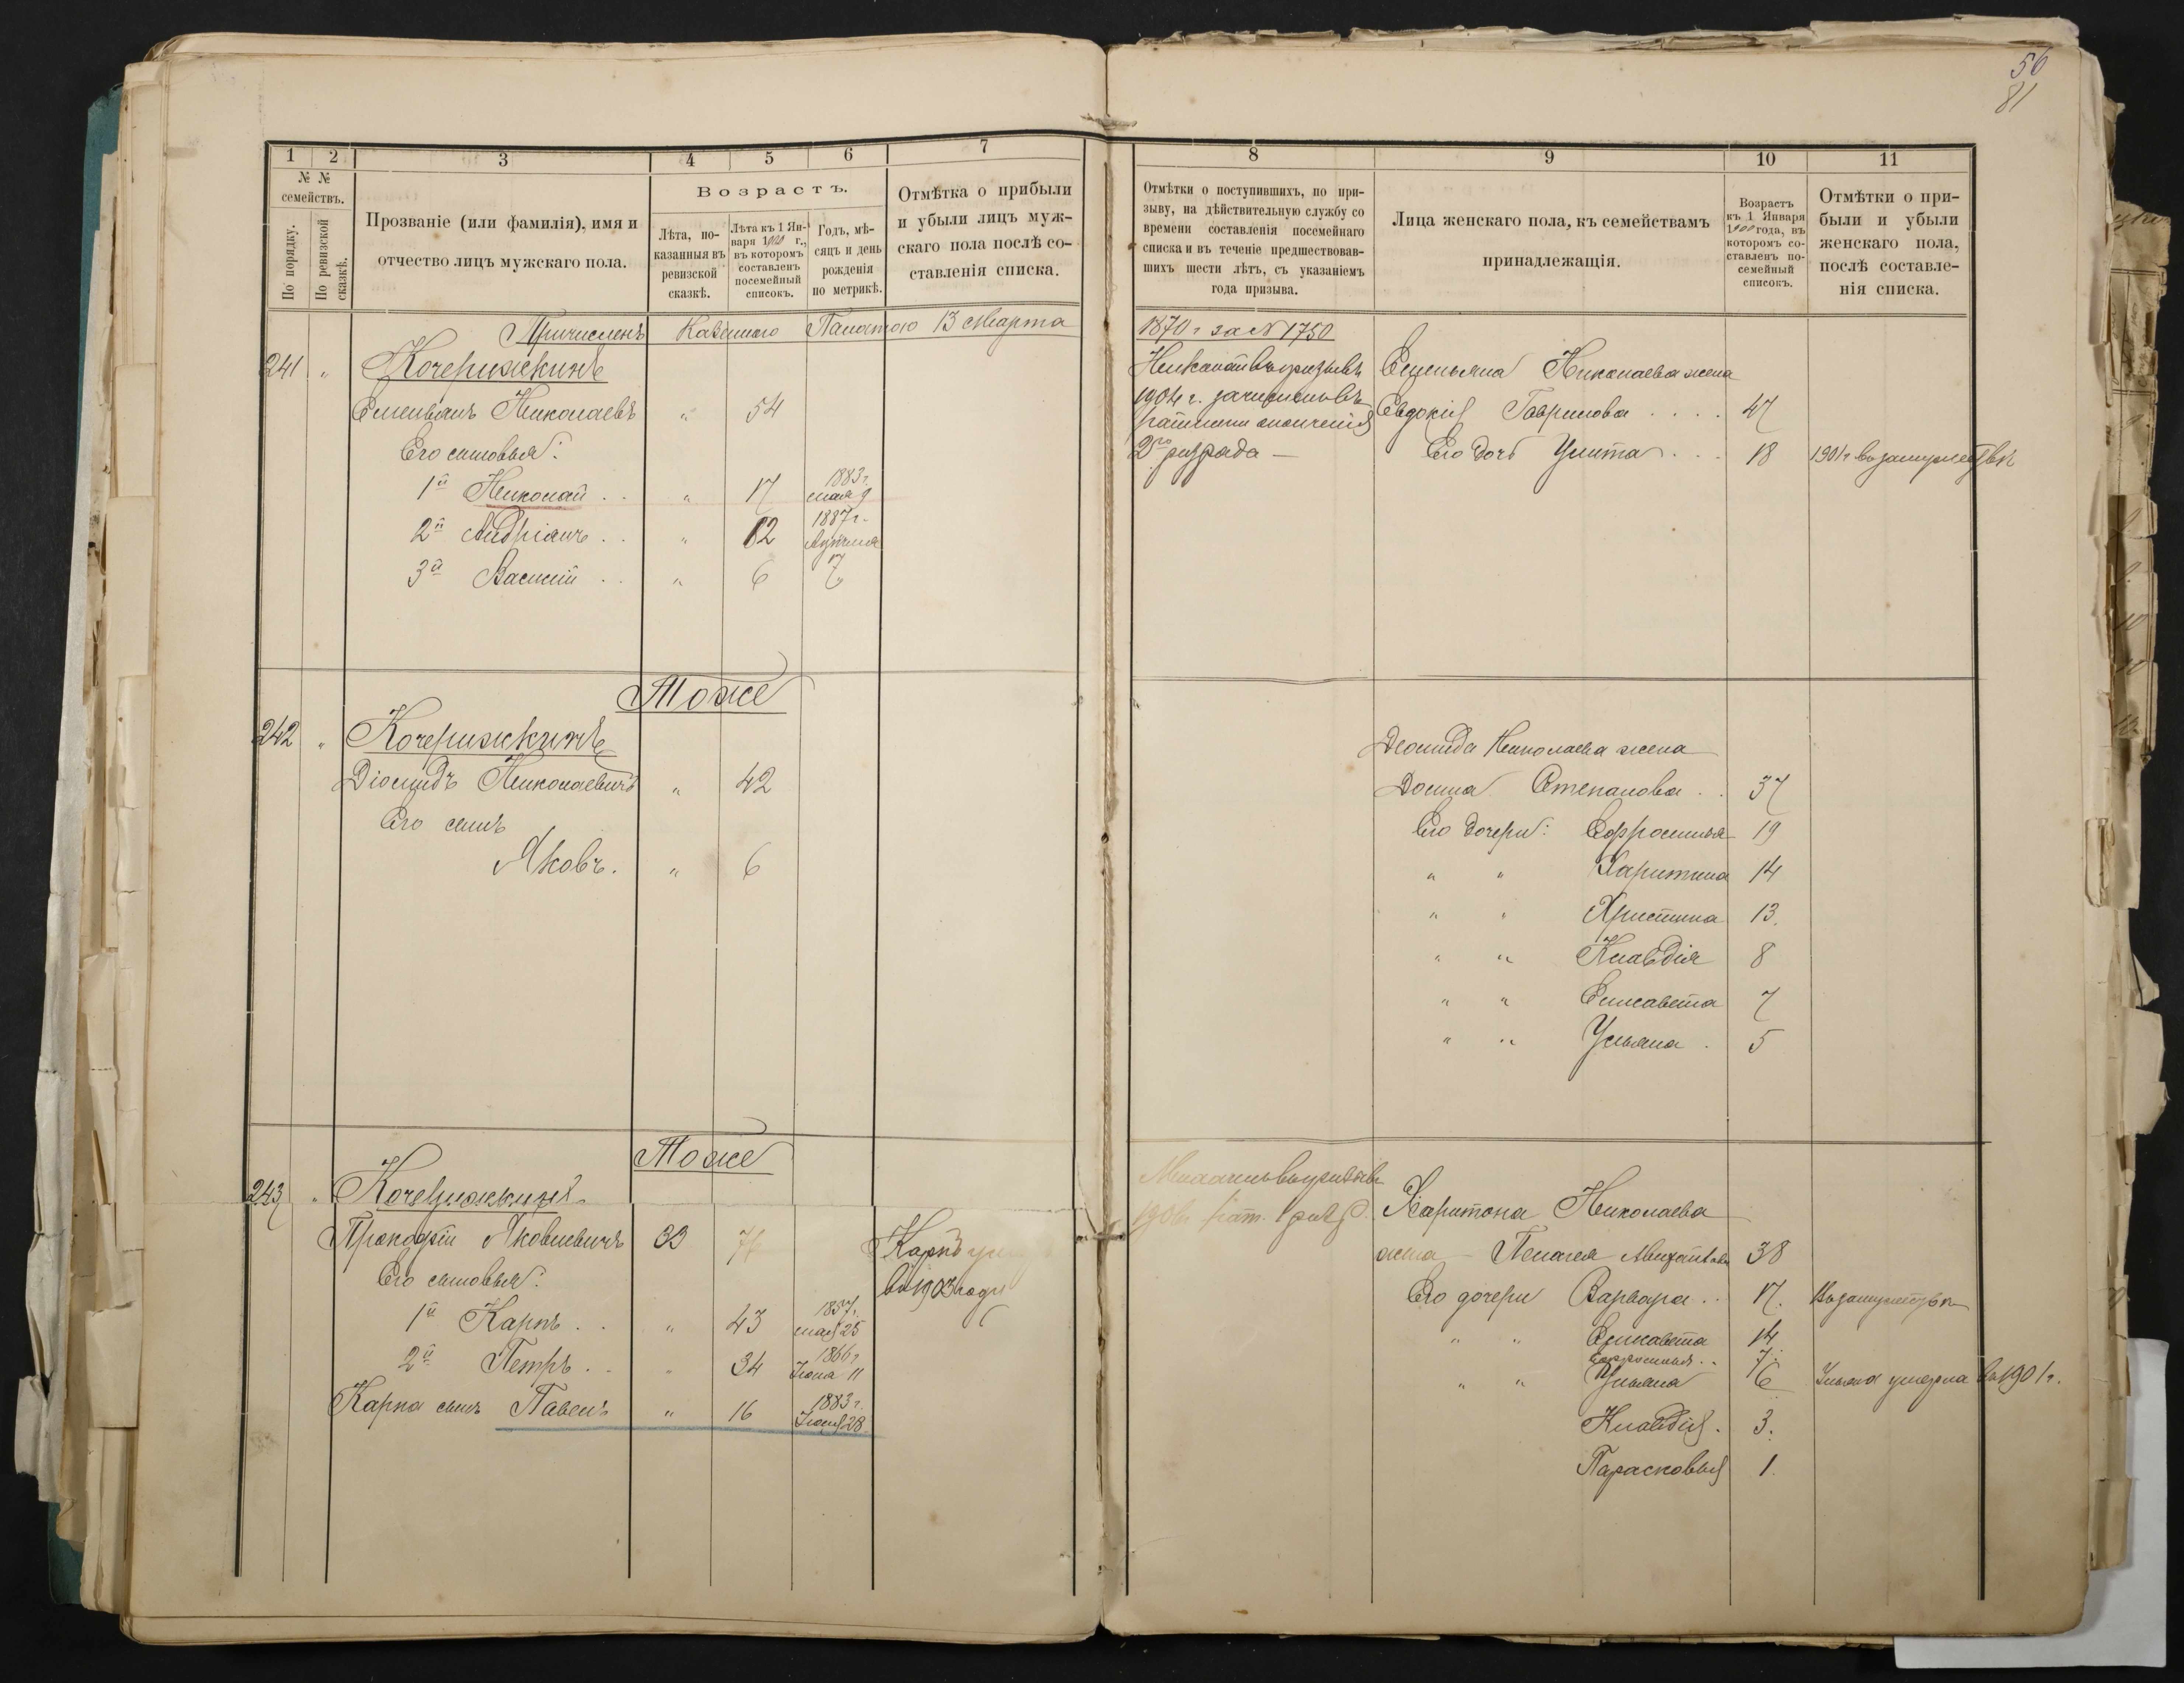 56
81
1 2 3 4 5 6 7
№ №
семействъ.
По порядку.
По ревизской
сказкѣ.
Прозваніе (или фамилія), имя и
отчество лицъ мужскаго пола.
Возрастъ.
Лѣта, по-
казанныя въ
ревизской
сказкѣ.
Лѣта къ 1 Ян-
варя 1900 г.,
въ которомъ
составленъ
посемейный
списокъ.
Годъ, мѣ-
сяцъ и день
рожденія
по метрикѣ.
Отмѣтка о прибыли
и убыли лицъ муж-
скаго пола послѣ со-
ставленія списка.
Причисленъ Казенною Палатою 13 Марта
241 " Кочерижкинъ
Емельянъ Николаевъ " 54
Его сыновья:
1й Николай . . " 17 1883 г.
мая 9
2й Андріанъ . . " 12 1887 г.
Августа
3й Василій . . " 6 7
Тоже
242 " Кочерижкинъ
Діомидъ Николаевичъ " 42
Его сынъ
Яковъ. " 6
Тоже
243 " Кочерижкинъ
Прокофій Яковлевичъ 33 Карпъ
Его сыновья: въ 1903 году
1й Карпъ . . " 43 1857 г.
мая 25
2й Петръ . . " 34 1866 г.
Іюня 11
Карпа сынъ Павелъ " 16 1883 г.
Іюня 28
8 9 10 11
Отмѣтки о поступившихъ, по при-
зыву, на дѣйствительную службу со
времени составленія посемейнаго
списка и въ теченіе предшествовав-
шихъ шести лѣтъ, съ указаніемъ
года призыва.
Лица женскаго пола, къ семействамъ
принадлежащія.
Возрастъ
къ 1 Января
1900 года, въ
которомъ со-
ставленъ по-
семейный
списокъ.
Отмѣтки о при-
были и убыли
женскаго пола,
послѣ составле-
нія списка.
1870 г за № 1750
Николай въ призывъ Емельяна Николаева жена
1904 г. зачисленъ въ Евдокія Гаврилова . . . . 47
ратники ополченія
2го разряда — Его дочь Улита . . . 18 1901 г въ замужествѣ
Деомида Николаева жена
Домна Степанова . . 37
Его дочери: Ефросинья 19
" " Харитина 14
" " Христина 13.
" " Клавдія 8
" " Елисавета 7
" " Ульяна . 5
Харитона Николаева
1906 рат. 1 разр.
жена — Пелагея 38
Его дочери Варвара . . 17. Въ замужествѣ
" " Елисавета 14
Ефросинья . . 7.
" " Ульяна 6 Ульяна умерла въ 1901 г.
Клавдія . 3.
Парасковья 1.